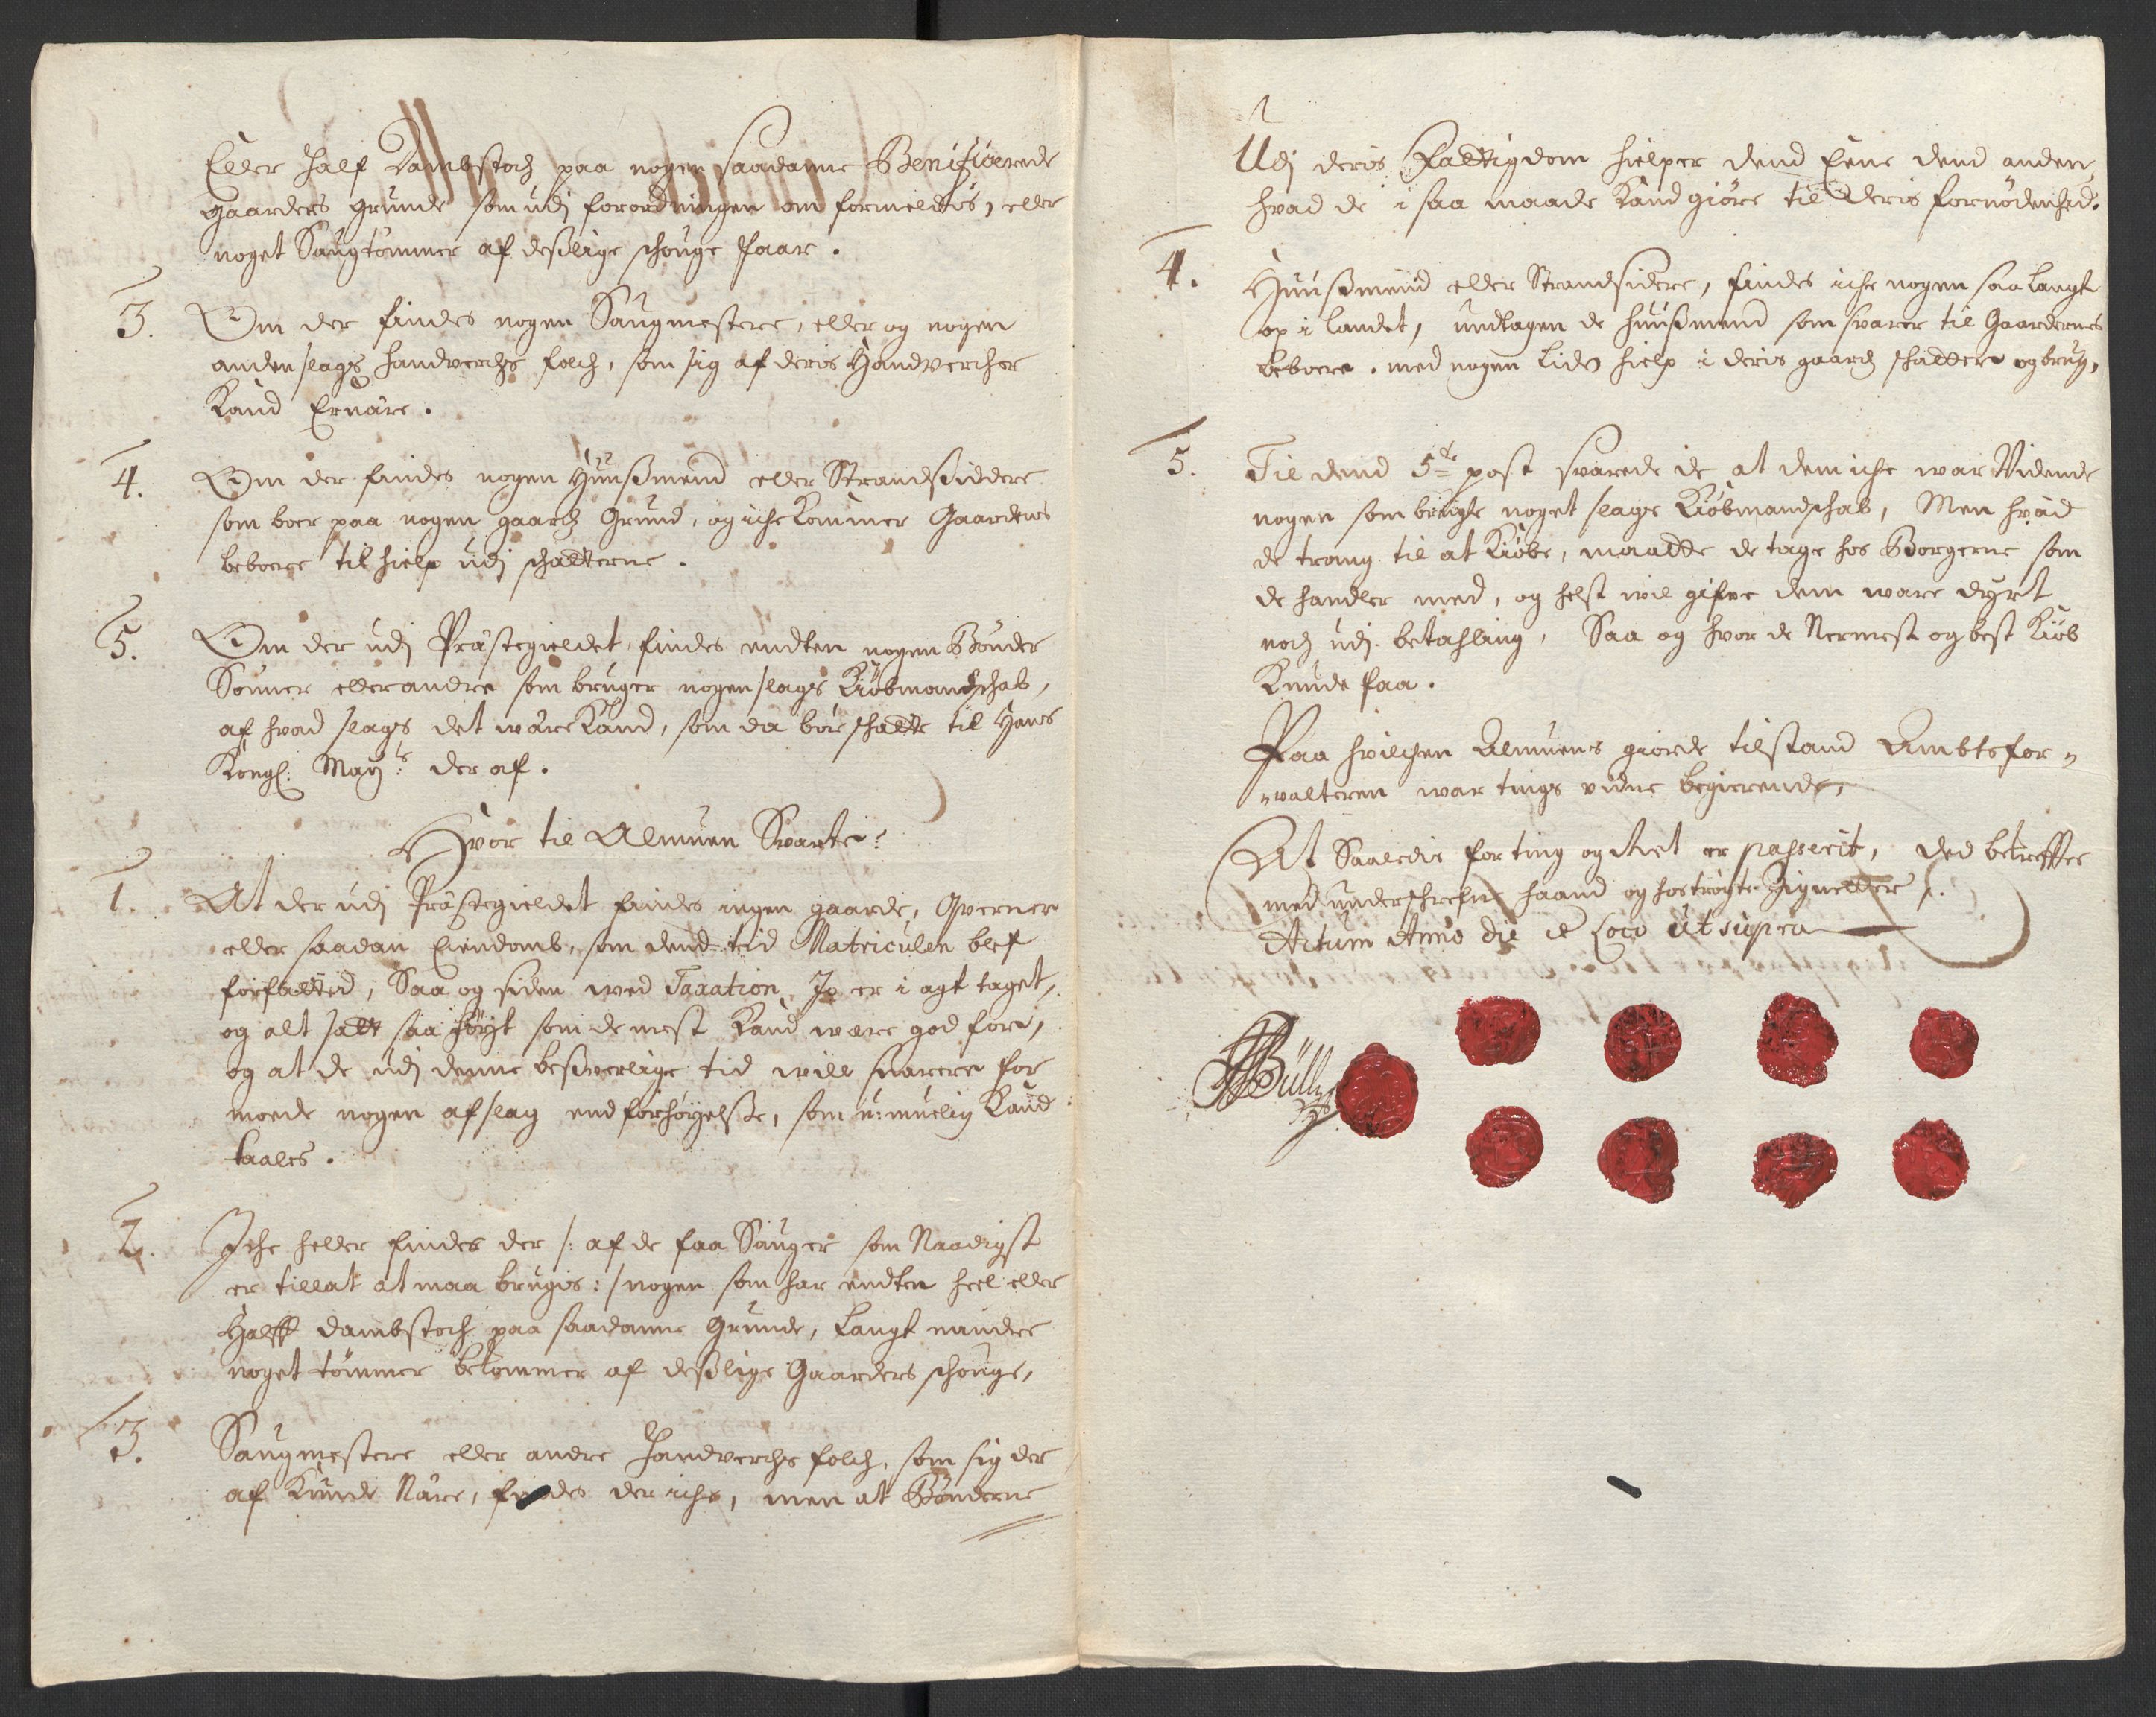 Eller half Dambstoch paa nogen saadanne Benificerede
gaarders grunde som udj forordningen om formeldis, eller
noget Saugtømmer af deslige schouge faar.
3. Om der findes nogen Saugmestere, eller og nogen
anden slags handverchs folch, som sig af deris Handvercher
Kand Ernäre.
4. Om der findes nogen Huusmend eller Strandsiddere
som boer paa nogen gaards Grund, og iche kommer Gaardens
beboere til hielp udj schatterne.
5. Om der udj Prästegieldet findes endten nogen Bønder
Sønner eller andre som bruger nogen slags Kiøbmandschab,
af hvad slags det være Kand, som da bør schatte til Hans
Kongl: Mayts der af.
Hvor til Almuen Svarte:
1. At der udj Prästegieldet findes ingen gaarde, Qverner
eller saadan Eiendomb, som dend tid Matriculen blef
forfattid, Saa og siden ved Taxation Jo er i agt taget,
og alt satt saa høyt som de mest Kand være god fore,
og at de udj denne besværlige tid vill snarere for
moede nogen afslag end forhøyelse, som u:muelig Kand
taales.
2. Iche heller findes der /: af de faa Sauger som Naadigst
er tillat at maa brugis :/ nogen som har endten heel eller
Halff dambstoch paa saadanne Grunde, langt mindre
noget tømmer bekommer af deslige Gaarders schouge,
3. Saugmestere eller andre Handverchs folch, som sig der
af Kunde Näre, findes der iche, men at Bønderne
Udj deris Fattigdom hielper dend Eene dend anden,
hvad de i saa maade Kand giøre til deris fornødenhed.
4. Huusmend eller Strandsidere, findes iche nogen saa langt
op i landet, undtagen de huusmend som svarer til Gaardernes
beboere, med nogen liden hielp i deris gaards schatter og brug,
5. Til dend 5te post svarede de at dem iche war Vidende
nogen som brugte noget slags Kiøbmandschab, Men hvad
de trang til at Kiøbe, maatte de tage hos Borgerne som
de handler med, og helst vil gifve dem ware dyrt
noch udj betahling, Saa og hvor de Nermest og best Kiøb
Kunde faa.
Paa hvilchen Almuens giorde tilstand Ambtsfor-
-valteren war tings vidne begierende,
At Saaledis for ting og Ret er passerit, ded betreffter
med underschrefne haand og hostrøgte Zignetter.
Actum Anno die et Loco ut supra